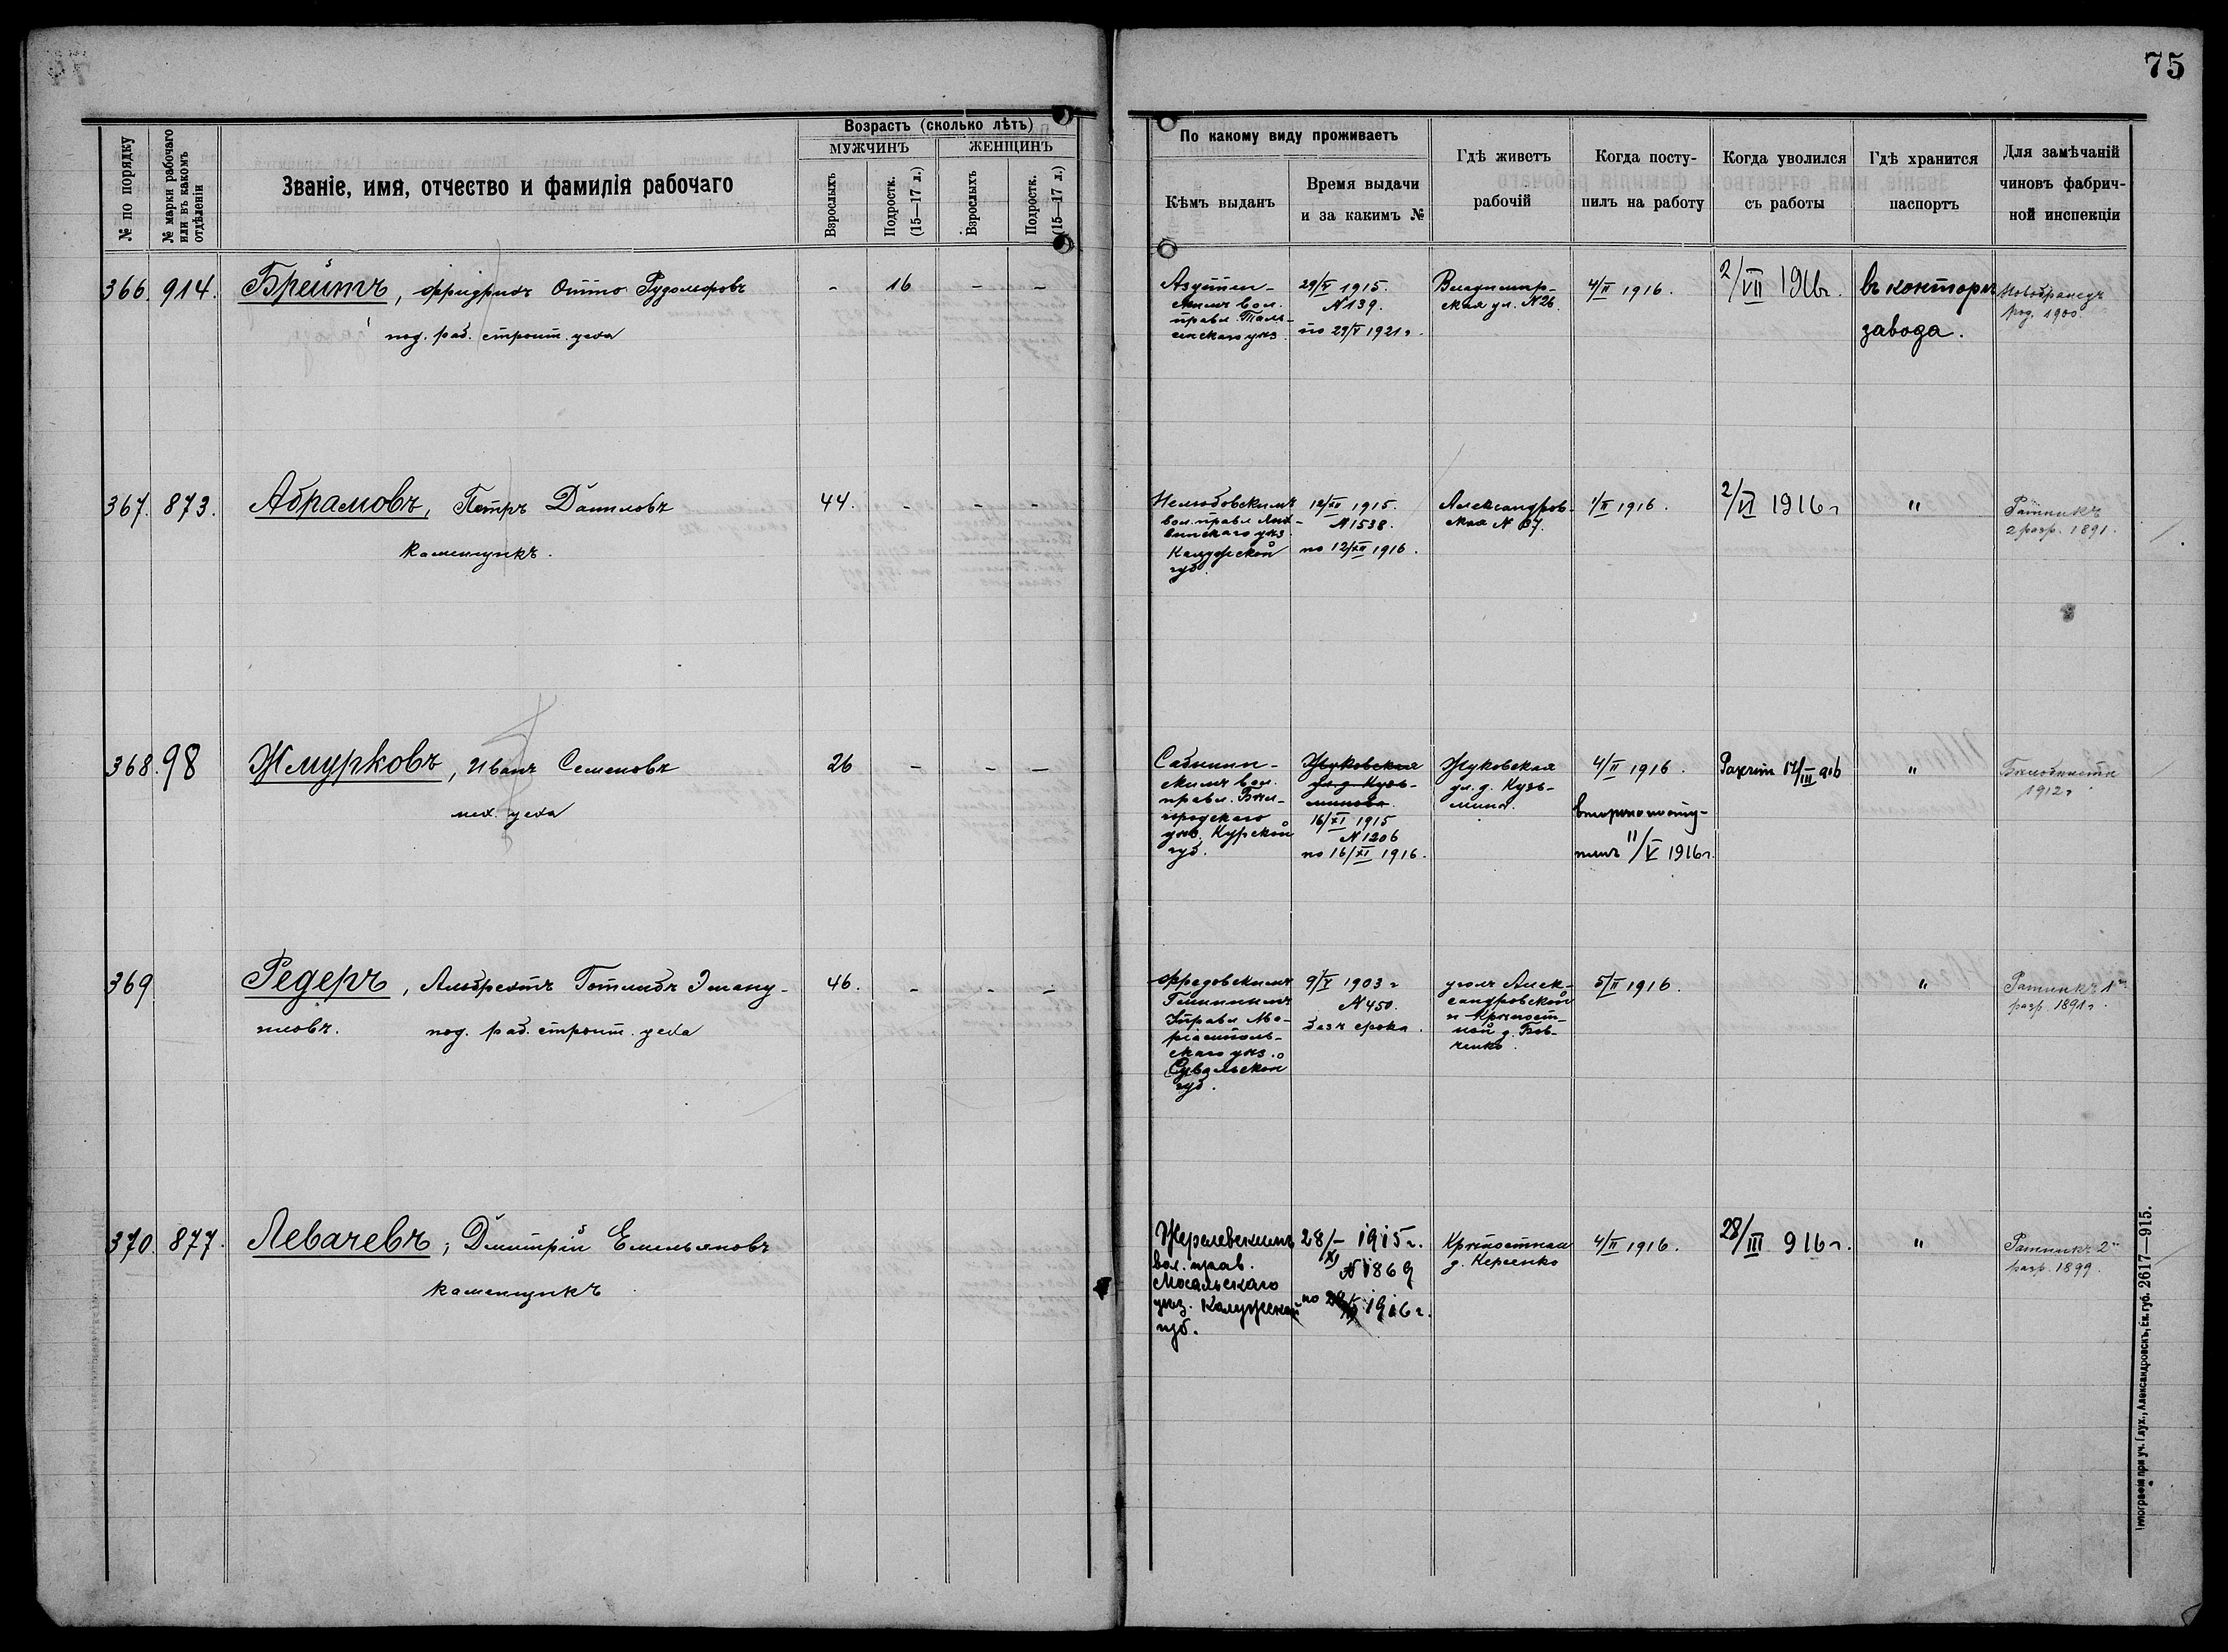 75
№ по порядку
№ марки рабочаго или въ какомъ отдѣленіи
Званіе, имя, отчество и фамилія рабочаго
Возрастъ (сколько лѣтъ)
МУЖЧИНЪ
ЖЕНЩИНЪ
Взрослыхъ
Подростк. (15—17 л.)
Взрослыхъ
Подростк. (15—17 л.)
По какому виду проживаетъ
Кѣмъ выданъ
Время выдачи
и за какимъ №
Гдѣ живетъ
рабочій
Когда посту-
пилъ на работу
Когда уволился
съ работы
Гдѣ хранится
паспортъ
Для замѣчаній
чиновъ фабрич-
ной инспекціи
366. 914. Брейтъ, Фридрихъ Отто Рудольфовъ
под. раб. строит. цеха
- 16 - -
вол.
правл.
29/V 1915.
№ 139.
по 29/V 1921 г.
Владимир-
ская ул. № 26.
4/II 1916.
2/VII 1916 г.
въ конторѣ
завода.
Новобранецъ
род. 1900
367. 873. Абрамовъ, Петръ Даниловъ
Каменщикъ.
44. - - -
Нелюбовскимъ
вол. правл. Лих-
винскаго уѣз.
Калужской
губ.
12/XII 1915.
№ 1538.
по 12/XII 1916.
Александров-
ская № 87.
1/II 1916.
2/VI 1916 г
"
Ратникъ
2 разр. 1891.
368. 98 Жмурковъ, Иванъ Семеновъ
мех. цеха
26 - - -
Сабынин-
скимъ вол.
правл. Бѣл-
городскаго
уѣз. Курской
губ.
Жуковская
ул. д. Кузь-
минова.
16/XI 1915
№ 1206
по 16/XI 1916.
Жуковская
ул. д. Кузь-
мина.
4/II 1916.
вторично посту-
пилъ 11/V 1916 г.
Разчит 17/III 916
"
1912 г
369 Редеръ, Альбрехтъ Готлибъ Эману-
иловъ. под. раб. строит. цеха
46. - - -
Фредовскимъ
Гминнымъ
Управл. Ма-
ріампольскаго уѣз.
Сувалкской
губ.
9/V 1903 г
№ 450.
безъ срока.
уголъ Алек-
сандровской
и Крѣпост-
ной д. Бов-
ченко.
5/II 1916.
"
Ратникъ 1
разр. 1891 г.
370. 877. Левачевъ, Дмитрій Емельяновъ
каменщикъ
Жерелевскимъ
вол. прав.
Мосальскаго
уѣз. Калужской
губ.
28/XI 1915 г.
№ 1869
по 28/XI 1916 г.
Крѣпостная
д. Керсенко
4/II 1916.
28/III 916 г.
"
Ратникъ 2
разр. 1899.
Типограф. при уч. Глух., Александровскъ, Ек. губ. 2617—915.